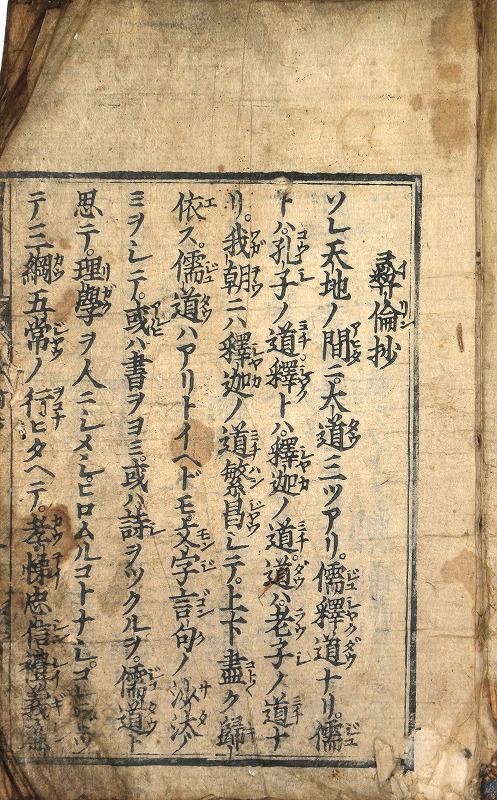 彝倫抄
ソレ天地ノ間ニ。大道三ツアリ。儒釋道ナリ。儒
トハ。孔子ノ道。釋トハ。釋迦ノ道。道ハ。老子ノ道ナ
リ。我朝ニハ釋迦ノ道繁昌シテ。上下盡ク歸
依ス。儒道ハアリトイヘドモ。文字言句ノ沙汰ノ
ミヲシテ。或ハ書ヲヨミ。或ハ詩ヲツクルヲ。儒道ト
思テ。理學ヲ人ニシメシ。ヒロムルコトナシ。コレニヨツ
テ三綱五常ノ行ヒタヘテ。孝悌忠信禮義